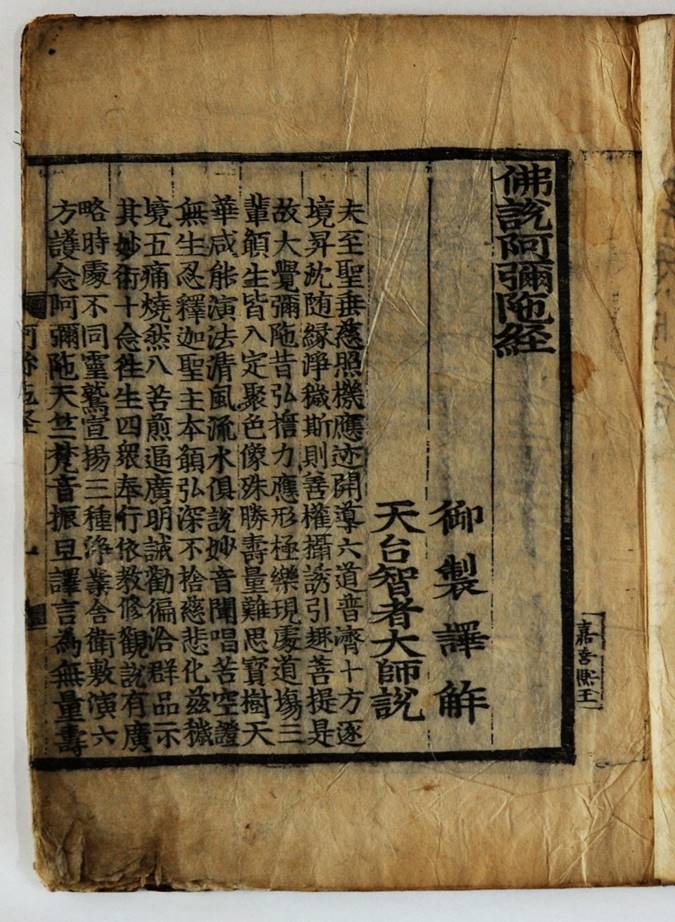 佛說阿彌陁経
御製譯觧
天台智者大師說
夫至聖垂慈照機應迹開導六道普濟十方逐
境昇沈随緣淨穢斯則善權攝誘引趣菩提是
故大覺彌陁昔弘擔力應形極樂現處道塲三
輩頠生皆入定聚色像殊勝壽量難思寶樹天
華咸能演法清風流水俱說妙音聞唱苦空證
無生忍釋迦聖主本頠弘深不捨慈悲化兹穢
境五痛燒然八苦煎逼廣明誠勸徧洽群品示
其妙術十念徃生四衆奉行依教修觀說有廣
略時處不同靈鷲宣揚三種淨業舍衛敷演六
方護念阿彌陁天竺梵音振旦譯言為無量壽